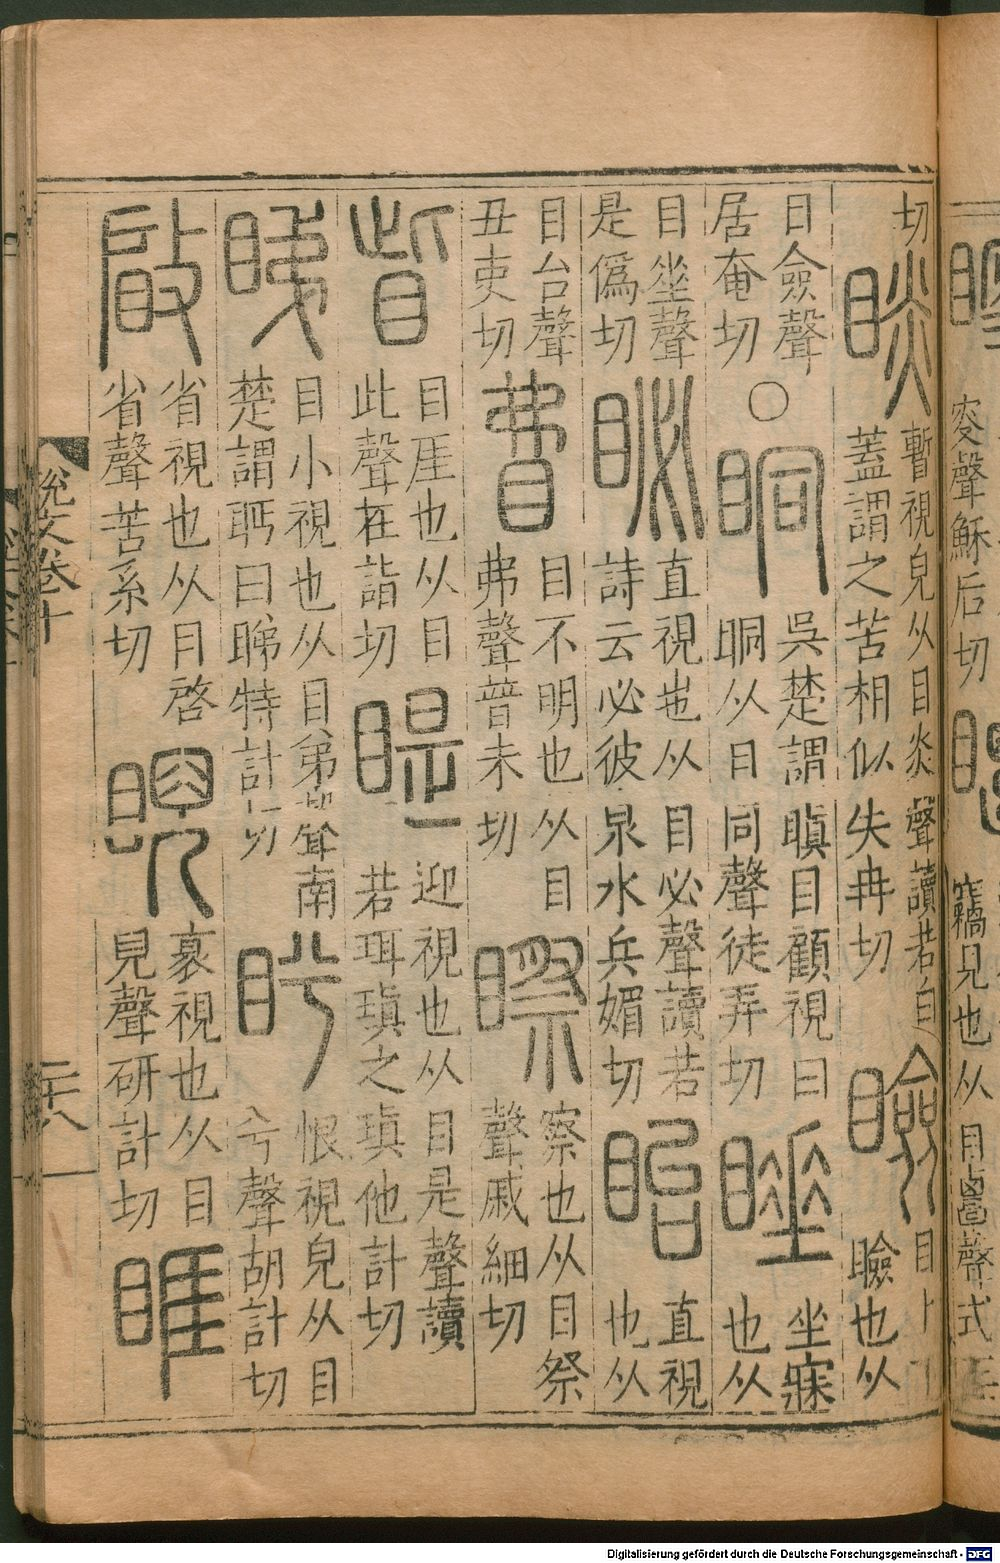 窔聲穌后切
竊見也从目
切睒暫視皃从目炎聲讀若白蓋謂之苦相似失冉切瞼目上瞼也从
目僉聲居奄切○眮吳楚謂瞋目顧視曰眮从目同聲徒弄切睉坐寐也从
目坐聲是僞切䀣直視也从目必聲讀若詩云必彼泉水兵媚切眙直視也从
目台聲丑吏切𥄱目不明也从目弗聲普未切察也从目祭聲戚細切
眥目厓也从目此聲在詣切睼迎視也从目是聲讀若珥瑱之瑱他計切
睇目小視也从目弟聲南楚謂眄曰睇特計切盻恨視皃从目兮聲胡計切
䁈省視也从目啓省聲苦系切睨衺視也从目見聲研計切睢
說文卷十
二十八
Digitalisierung gefördert durch die Deutsche Forschungsgemeinschaft - DFG